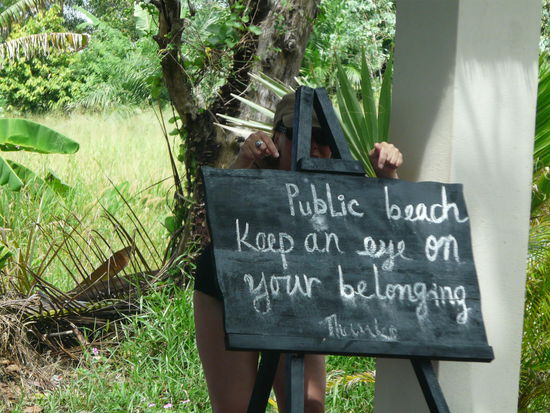 Public beach
Keep an eye on
your belonging
Thanks